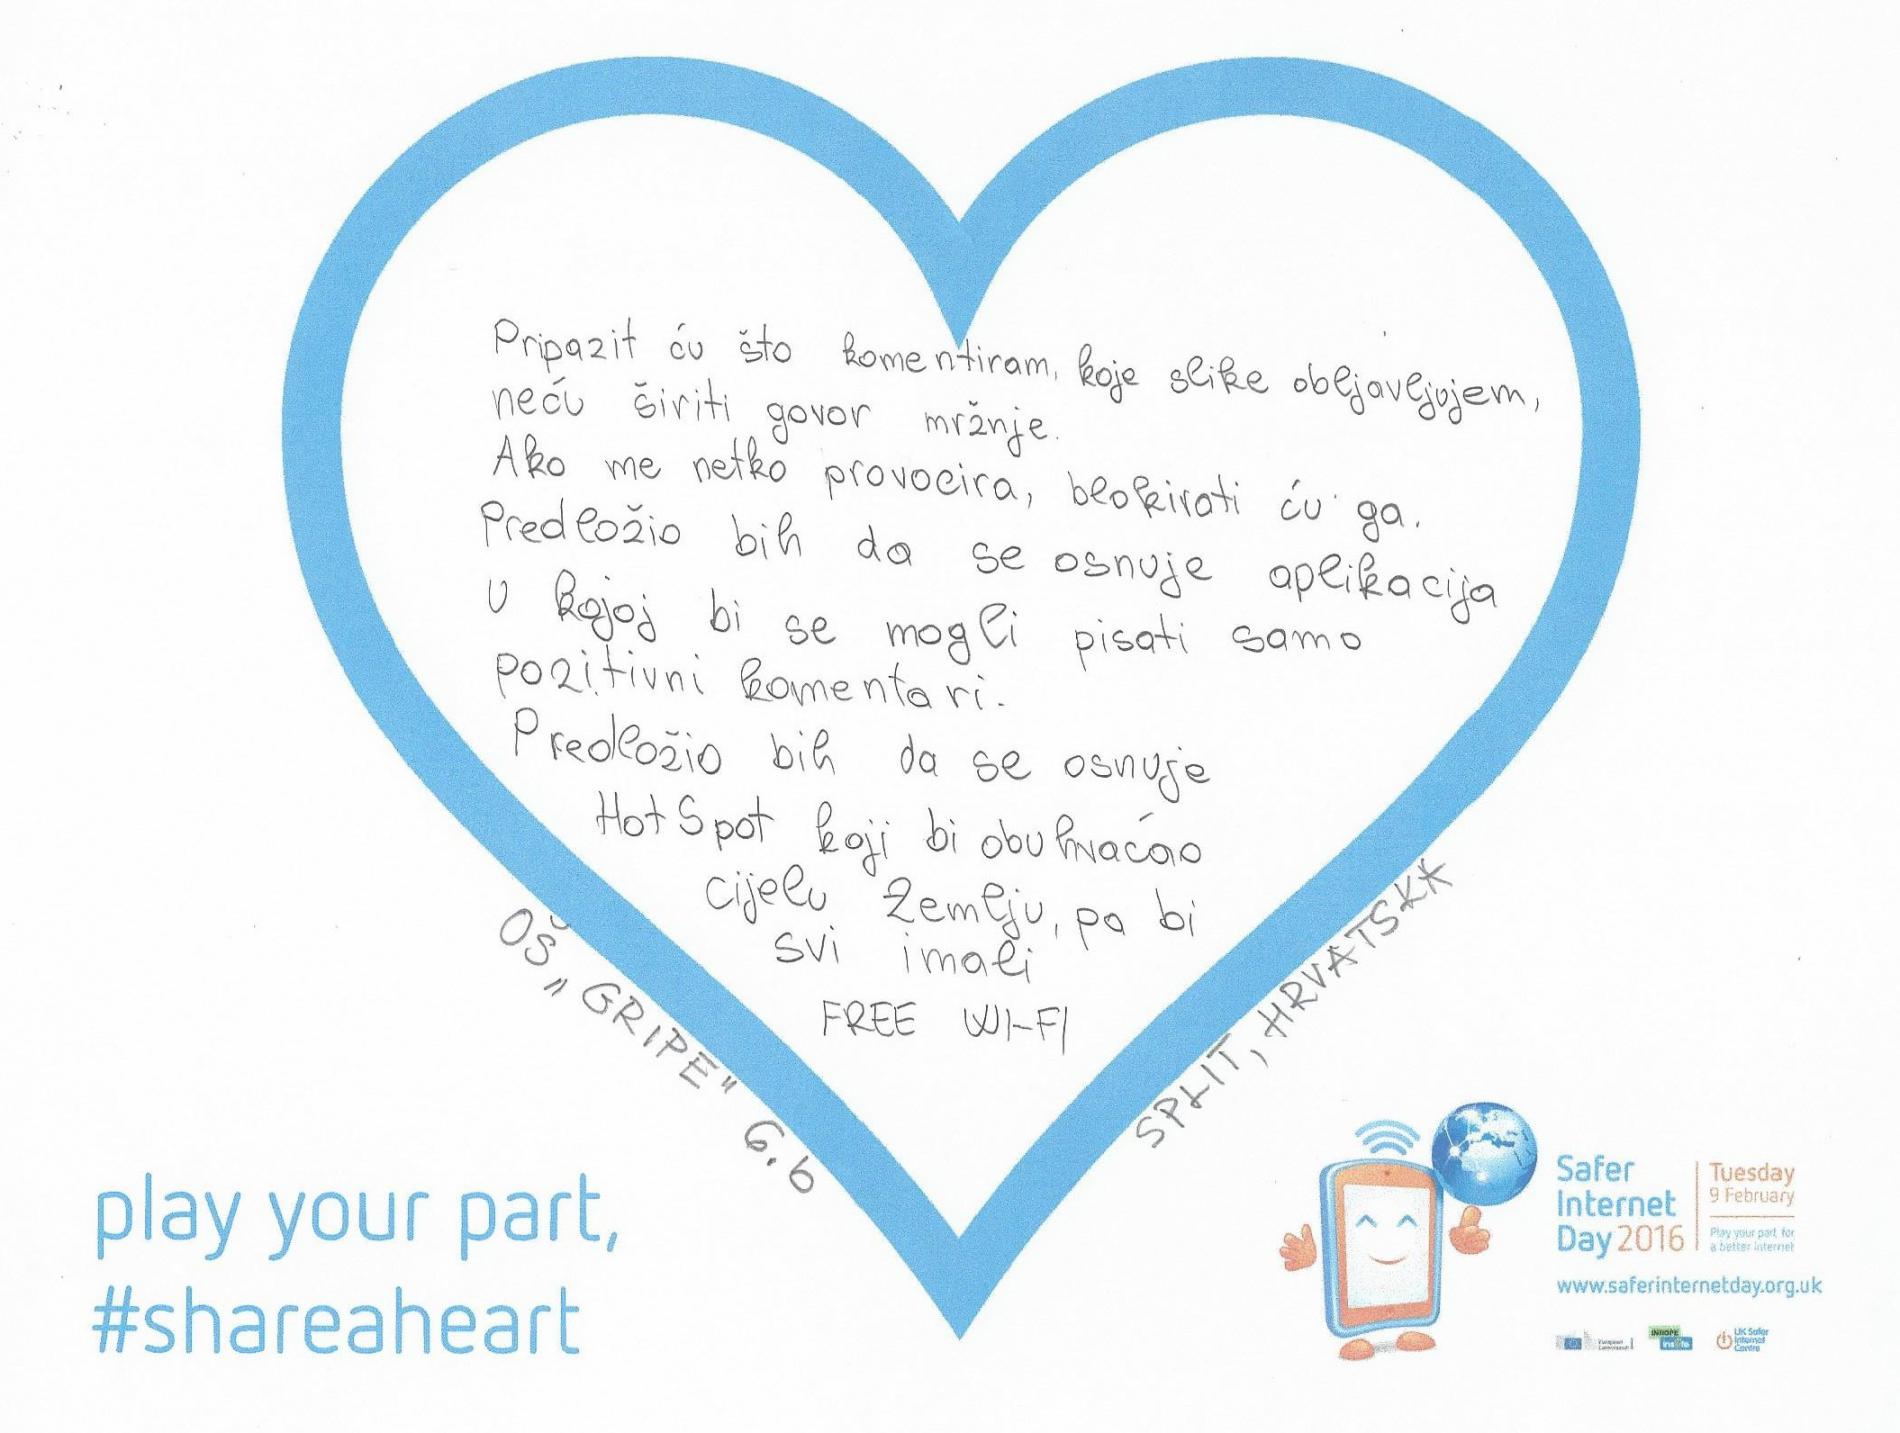 Pripazit ću što komentiram, koje slike objavljujem,
neću širiti govor mržnje.
Ako me netko provocira, blokirati ću ga.
Predložio bih da se osnuje aplikacija
u kojoj bi se mogli pisati samo
pozitivni komentari.
Predložio bih da se osnuje
HotSpot koji bi obuhvaćao
cijelu Zemlju, pa bi
svi imali
FREE WI-FI
OŠ „GRIPE" 6.b
SPLIT, HRVATSKA
play your part,
#shareaheart
Safer
Internet
Day 2016
Tuesday
9 February
Play your part for
a better internet
www.saferinternetday.org.uk
European
Commission
INHOPE
insafe
UK Safer
Internet
Centre